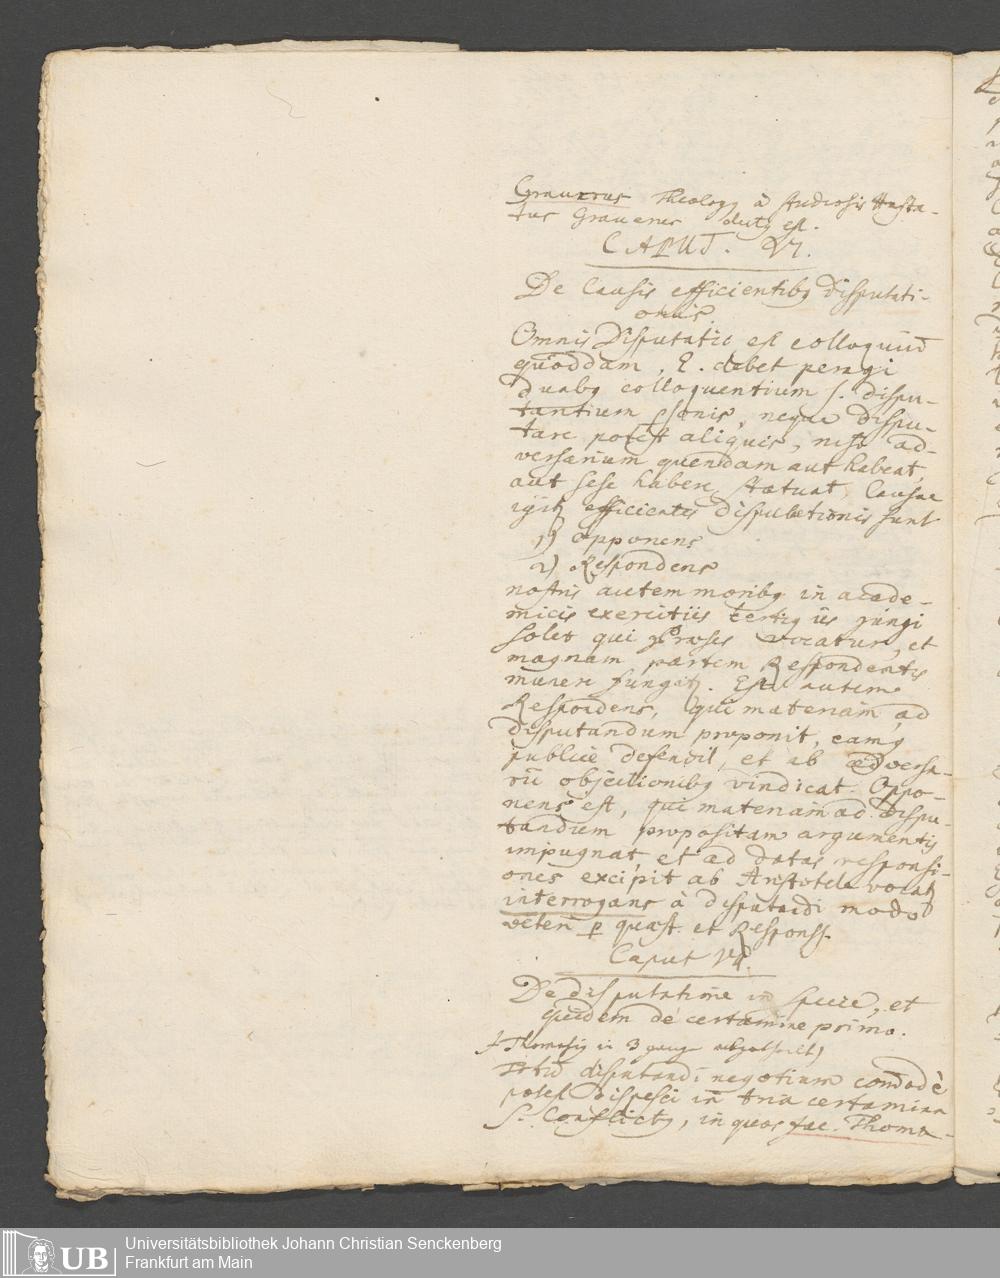 Grauerus Theology à studiosis Hasta-
tus Grauerus dicty est.
CAPUT. VI.
De Causis efficientiby disputati-
onis.
Omnis Disputatio est colloquiũ
quoddam, E. debet peragi
duaby colloquentium s. dispu-
tantium psonis, neque dispu-
tare potest aliquis, nisi ad-
versarium quendam aut habeat,
aut sese habere statuat, Causae
igitz efficientes disputationis sunt
1) opponens
2) Respondens
nostris autem moriby in acade-
micis exercitiis tertiq iis jungi
solet qui Præses vocatur, et
magnam partem Respondentis
munere fungitz. Est autem
Respondens, qui materiam ad
disputandum proponit, eamq
publicè defendit, et ab adversa-
rii objectioniby vindicat. Oppo-
nens est, qui materiam ad dispu-
tandum propositam argumentis
impugnat, et ad datas responsi-
ones excipit ab Aristotele vocatz
interrogans à disputandi modo
veteri p quæst. et Respons.
Caput VII.
De disputatione in specie, et
quidem de certamine primo.
Totũ disputandi negotium comodè
potest dispesci in tria certamina
s. Conflicty, in quos Jac. Thoma-
Universitätsbibliothek Johann Christian Senckenberg
UB Frankfurt am Main